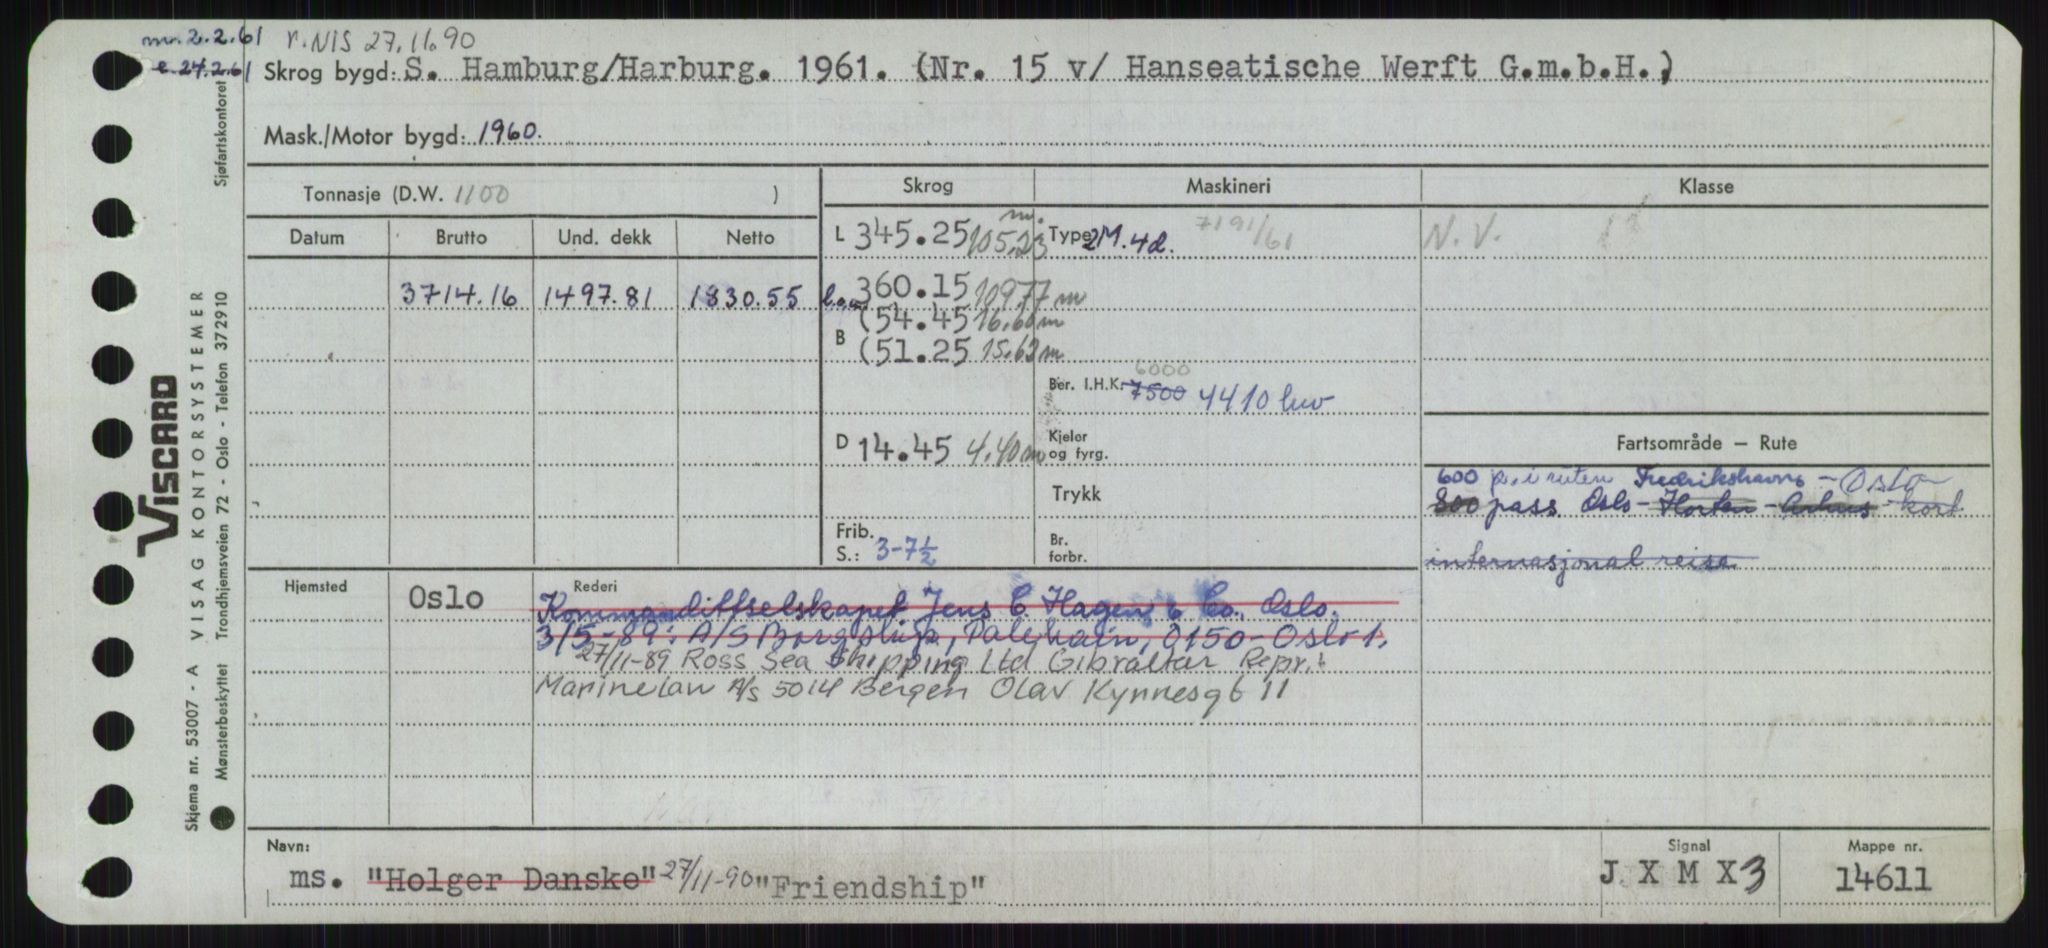 m. 2.2.61 r. NIS 27.11.90
e. 24.2.61 Skrog bygd: S. Hamburg/Harburg. 1961. (Nr. 15 v/ Hanseatische Werft G.m.b.H.,)
Mask./Motor bygd: 1960.
Tonnasje (D.W. 1100 )
Skrog Maskineri Klasse
Datum Brutto Und. dekk Netto
3714.16 1497.81 1830.55
L 345.25 m. 105,23
l.o.a. 360.15 109.77 m
B (54.45 16.60 m
(51.25 15.62 m
D 14.45 4.40 m
Frib. S.: 3-7½
Type 2M. 4d. 7191/61
Ber. I.H.K. 7500 6000 4410 kw
Kjeler og fyrg.
Trykk
Br. forbr.
N.V.
Fartsområde – Rute
600 p. i ruten Fredrikshavn – Oslo
800 pass Oslo - Horten - Århus - kort
internasjonal reise
Hjemsted Oslo
Rederi
Kommandittselskapet Jens C. Hagen & Co. Oslo.
3/5-89: A/S Borgships, Paleyhain, 0150 - Oslo 1.
27/11-89 Ross Sea Shipping Ltd Gibraltar Repr.:
Marinelaw A/S 5014 Bergen Olav Kynnesgt 11
Navn: ms. "Holger Danske" 27/11-90 "Friendship"
Signal J X M X 3
Mappe nr. 14611
VISCARD
VISAG KONTORSYSTEMER
Skjema nr. 53007 - A
Mønsterbeskyttet Trondhjemsveien 72 - Oslo - Telefon 372910
Sjøfartskontoret